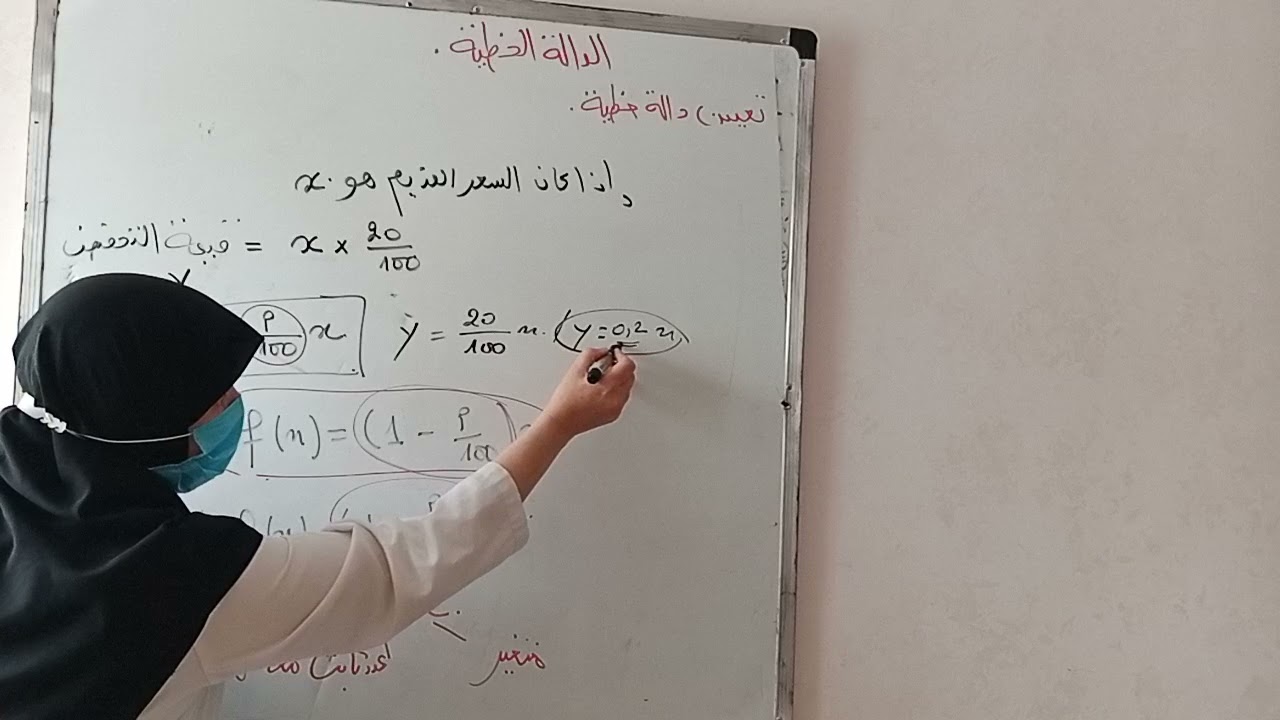 الدالة الخطية.
تعيين دالة خطية.
إذا كان السعر القديم هو x.
قيمة التخفيض = x × 20/100
y
P/100 x y = 20/100 x. (y = 0,2 x)
f(x) = (1 - P/100)
متغير